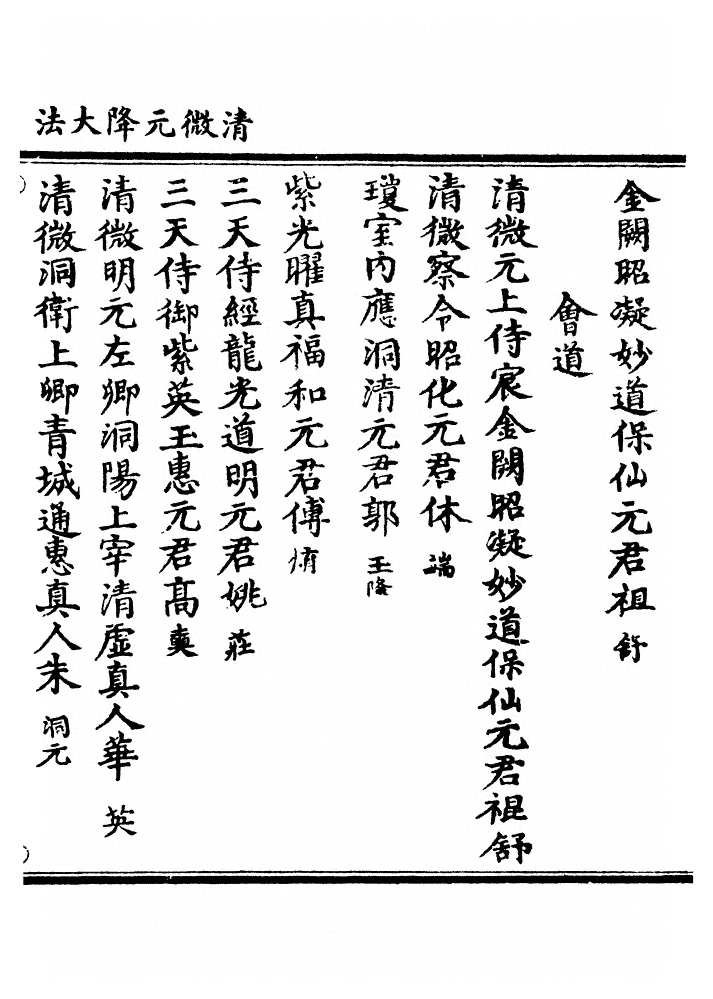 清微元降大法
金闕昭凝妙道保仙元君祖舒
會道
清微元上侍宸金闕昭凝妙道保仙元君祖舒
清微察令昭化元君休端
瓊室內應洞清元君郭玉隆
紫光曜真福和元君傅
三天侍經龍光道明元君姚莊
三天侍御紫英玉惠元君高奭
清微明元左卿洞陽上宰清虛真人華英
清微洞衛上卿青城通惠真人朱洞元